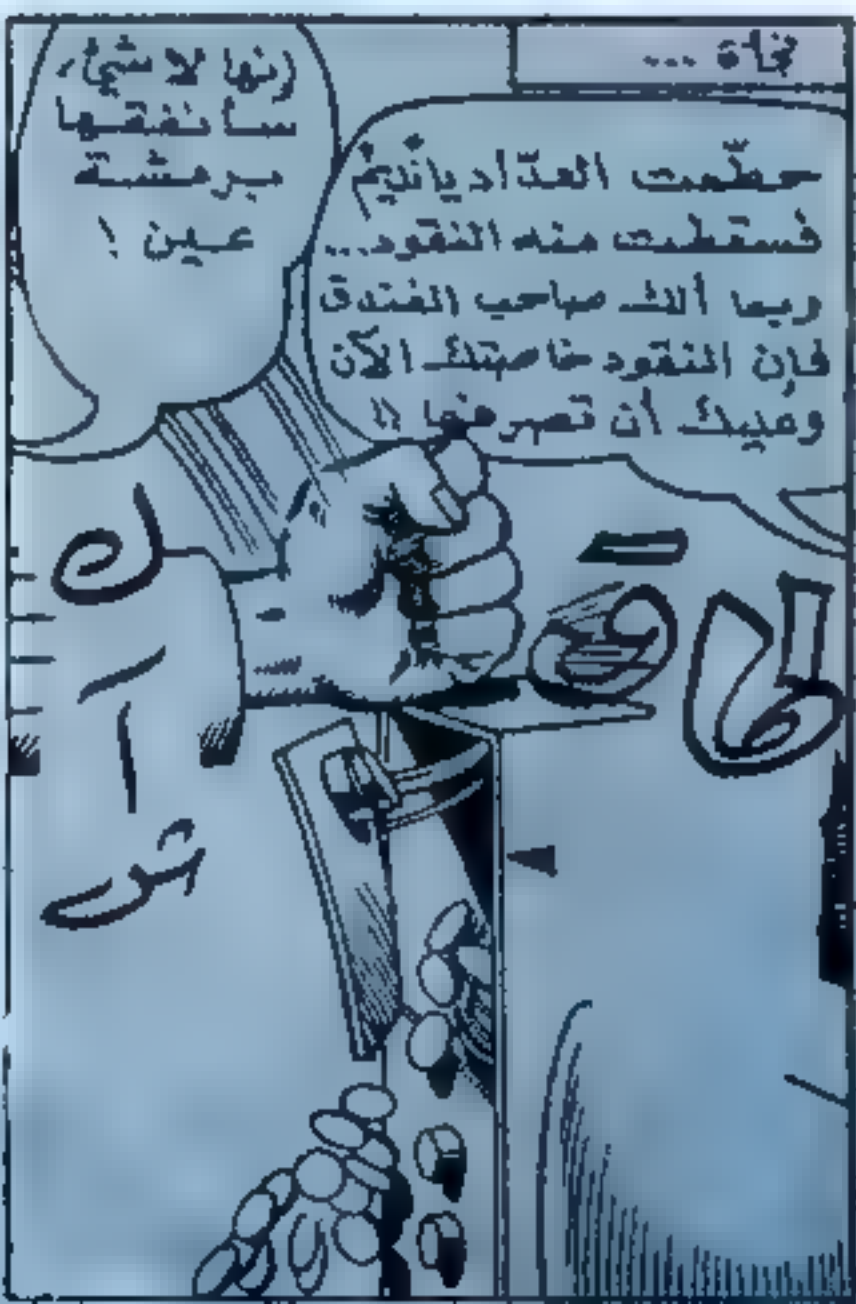 فجأة ...
حطّمت العدّاد يا نديم
فسقطت منه النقود...
وبما أنك صاحب الفندق
فإن النقود خاصتك الآن
وعليك أن تصرفها !!
إنها لا شيء،
سأنفقها
برمشة
عين !